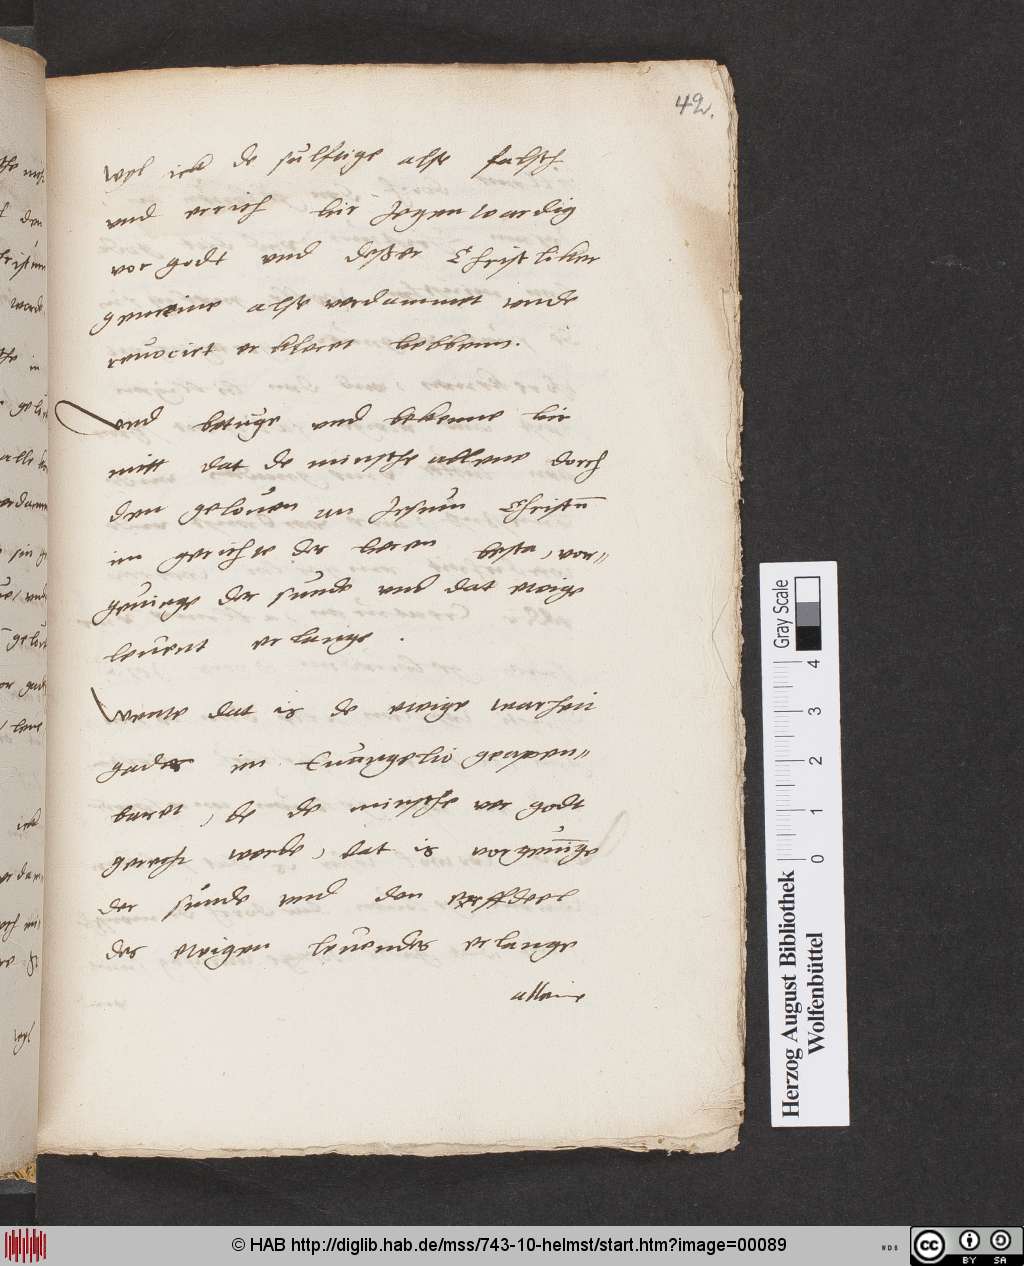 42.
Wyl ick de sulftige alse falsch
vnd errich hir Jegenwardig
vor godt vnd desser Christliker
gemeine alse verdammet vnde
reuocirt erkleret hebbenn.
Vnd betuge vnd bekenne hir
mitt dat de minsche allene dorch
den gelouen an Jesum Christū
im gerichte der heren besta, vor=
geuinge der sunde vnd dat ewige
leuent erlange.
Wente dat is de ewige warheit
gades im Euangelio geapen=
baret, de de minsche vor godt
gerecht werde, dat is vorgeuinge
der sunde vnd den erffdeel
des ewigen leuendes erlange
allene
Herzog August Bibliothek
Wolfenbüttel
0 1 2 3 4
Gray Scale
© HAB http://diglib.hab.de/mss/743-10-helmst/start.htm?image=00089
cc BY SA